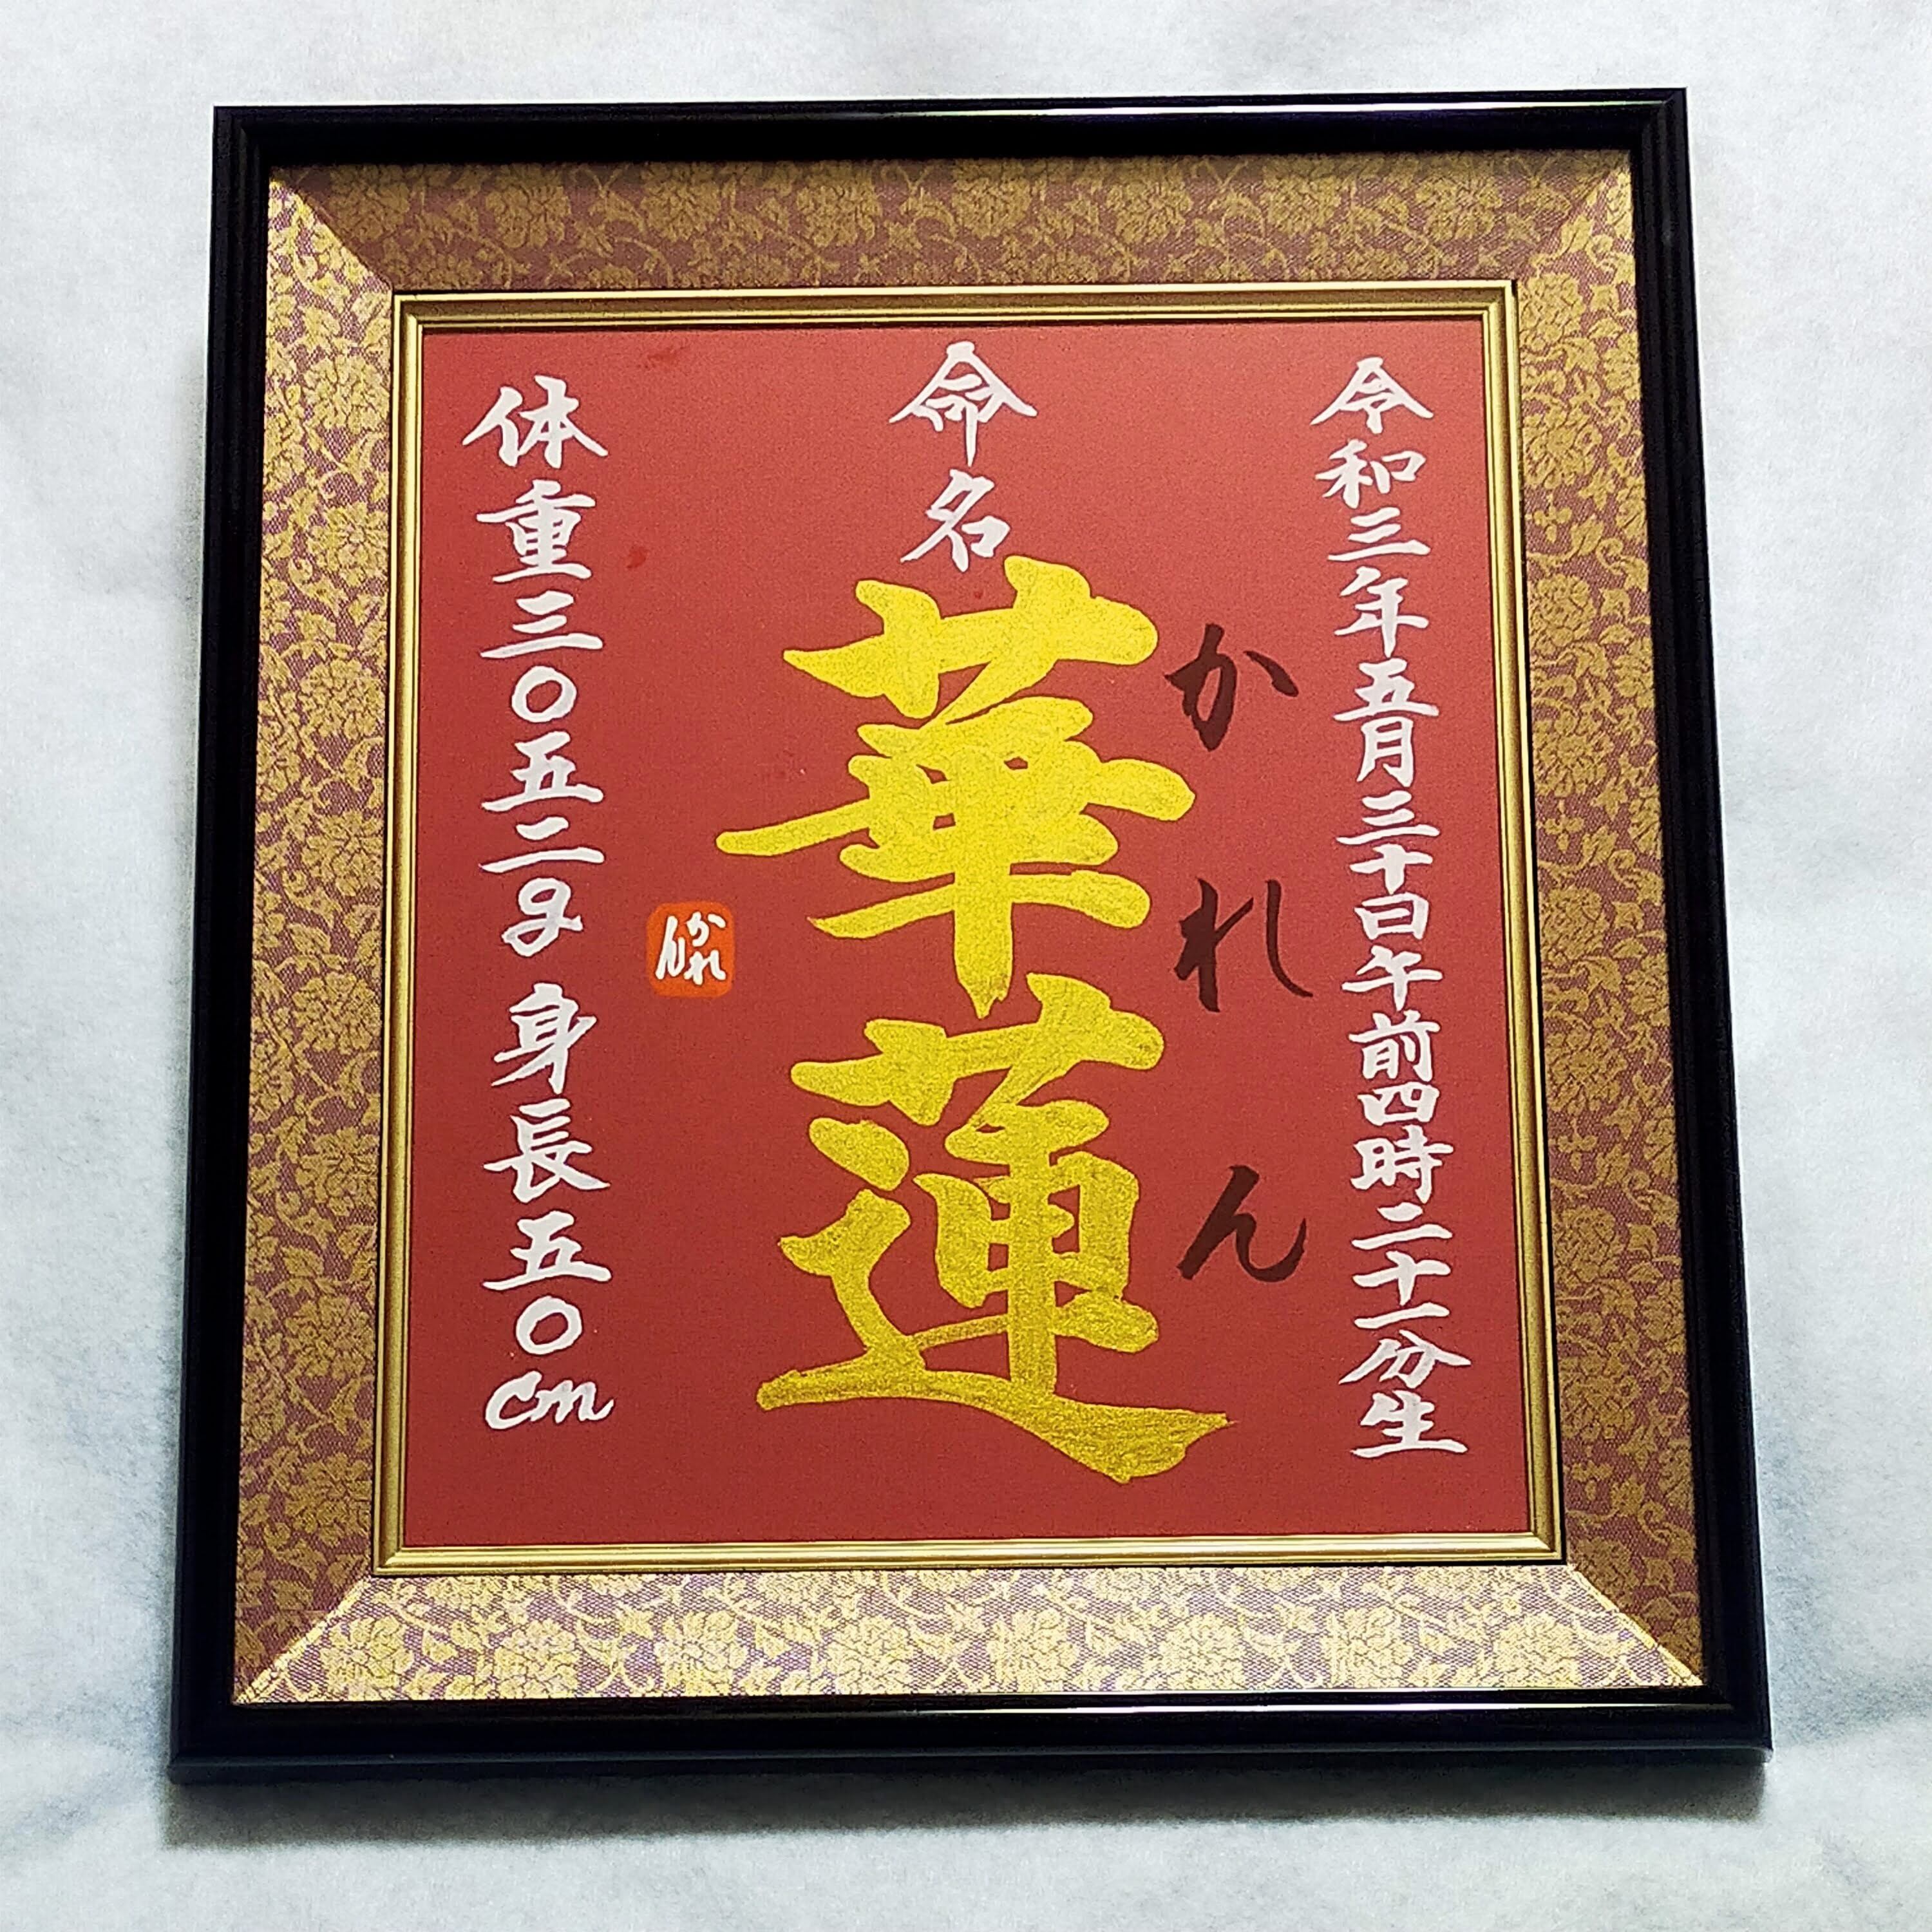 令和三年五月三十日午前四時二十一分生
かれん
命名
華蓮
かれ
ん
体重三〇五二g 身長五〇cm